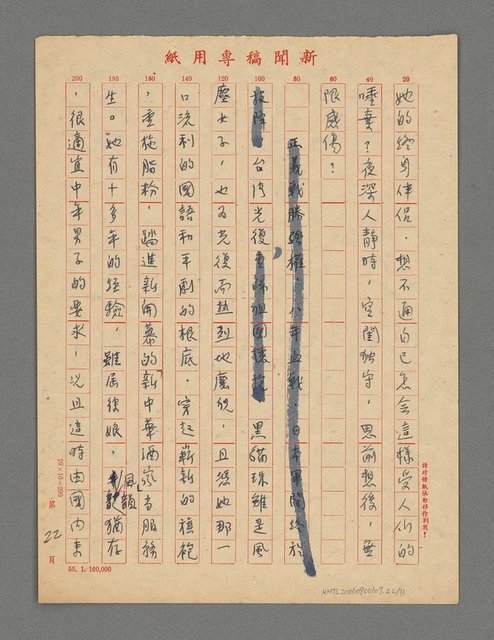 新聞稿專用紙
她的終身伴侶,想不通自己怎会這樣受人仙的
唾棄?夜深人靜時,空閨独守,思前想後,無
限感傷?
正義戰勝強權,八年血戰,日本軍閥終於
投降,台湾光復重歸祖国懷抱,黑貓珠雖是風
塵女子,也為光復而熱烈地慶祝,且憑她那一
口流利的國語和平劇的根底,穿起嶄新的旗袍
,重施脂粉,踏進新開幕的新中華酒家当服務
生。她有十多年的經驗,雖屆徐娘,風韻猶存
,很適宜中年男子的要求,況且這時由國內來
20
40
60
80
100
120
140
160
180
200
請珍惜紙張勿移作別用!
20×10=200
第 22 頁
55. 1. 100,000
NMTL20060900107.22/31